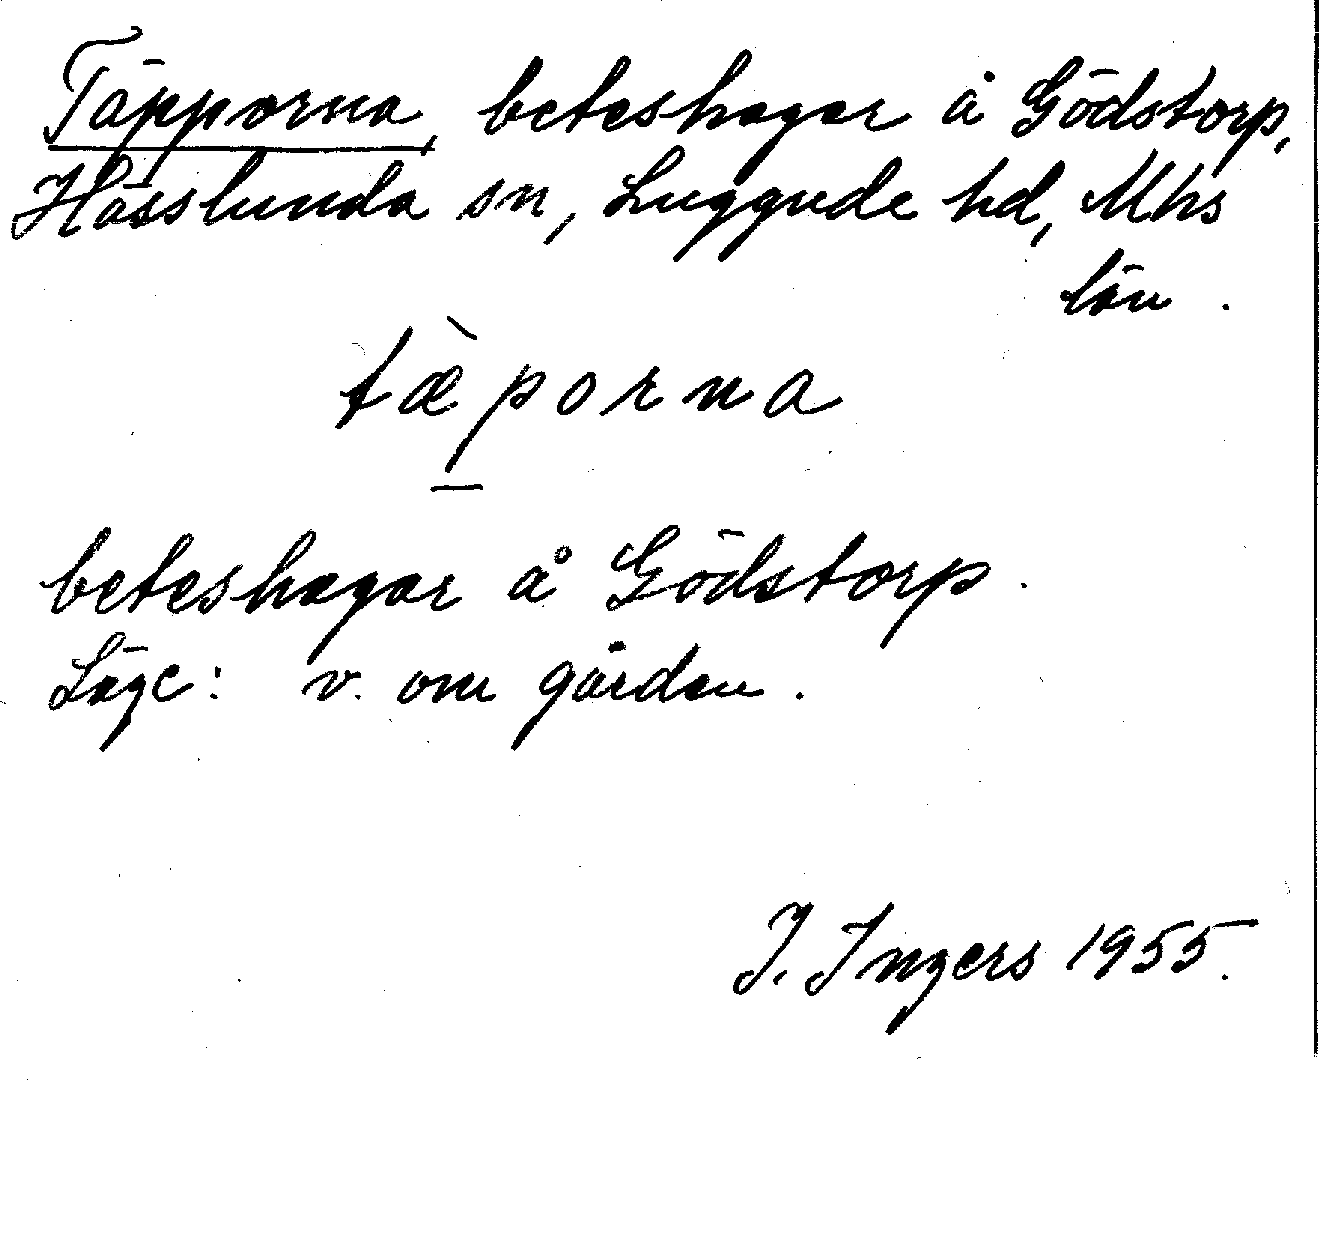 Täpporna, beteshagar å Gödstorp,
Hässlunda sn, Luggude hd, Mhs
län.
tæ̀porna
beteshagar å Gödstorp.
Läge: v. om gården.
I. Ingers 1955.